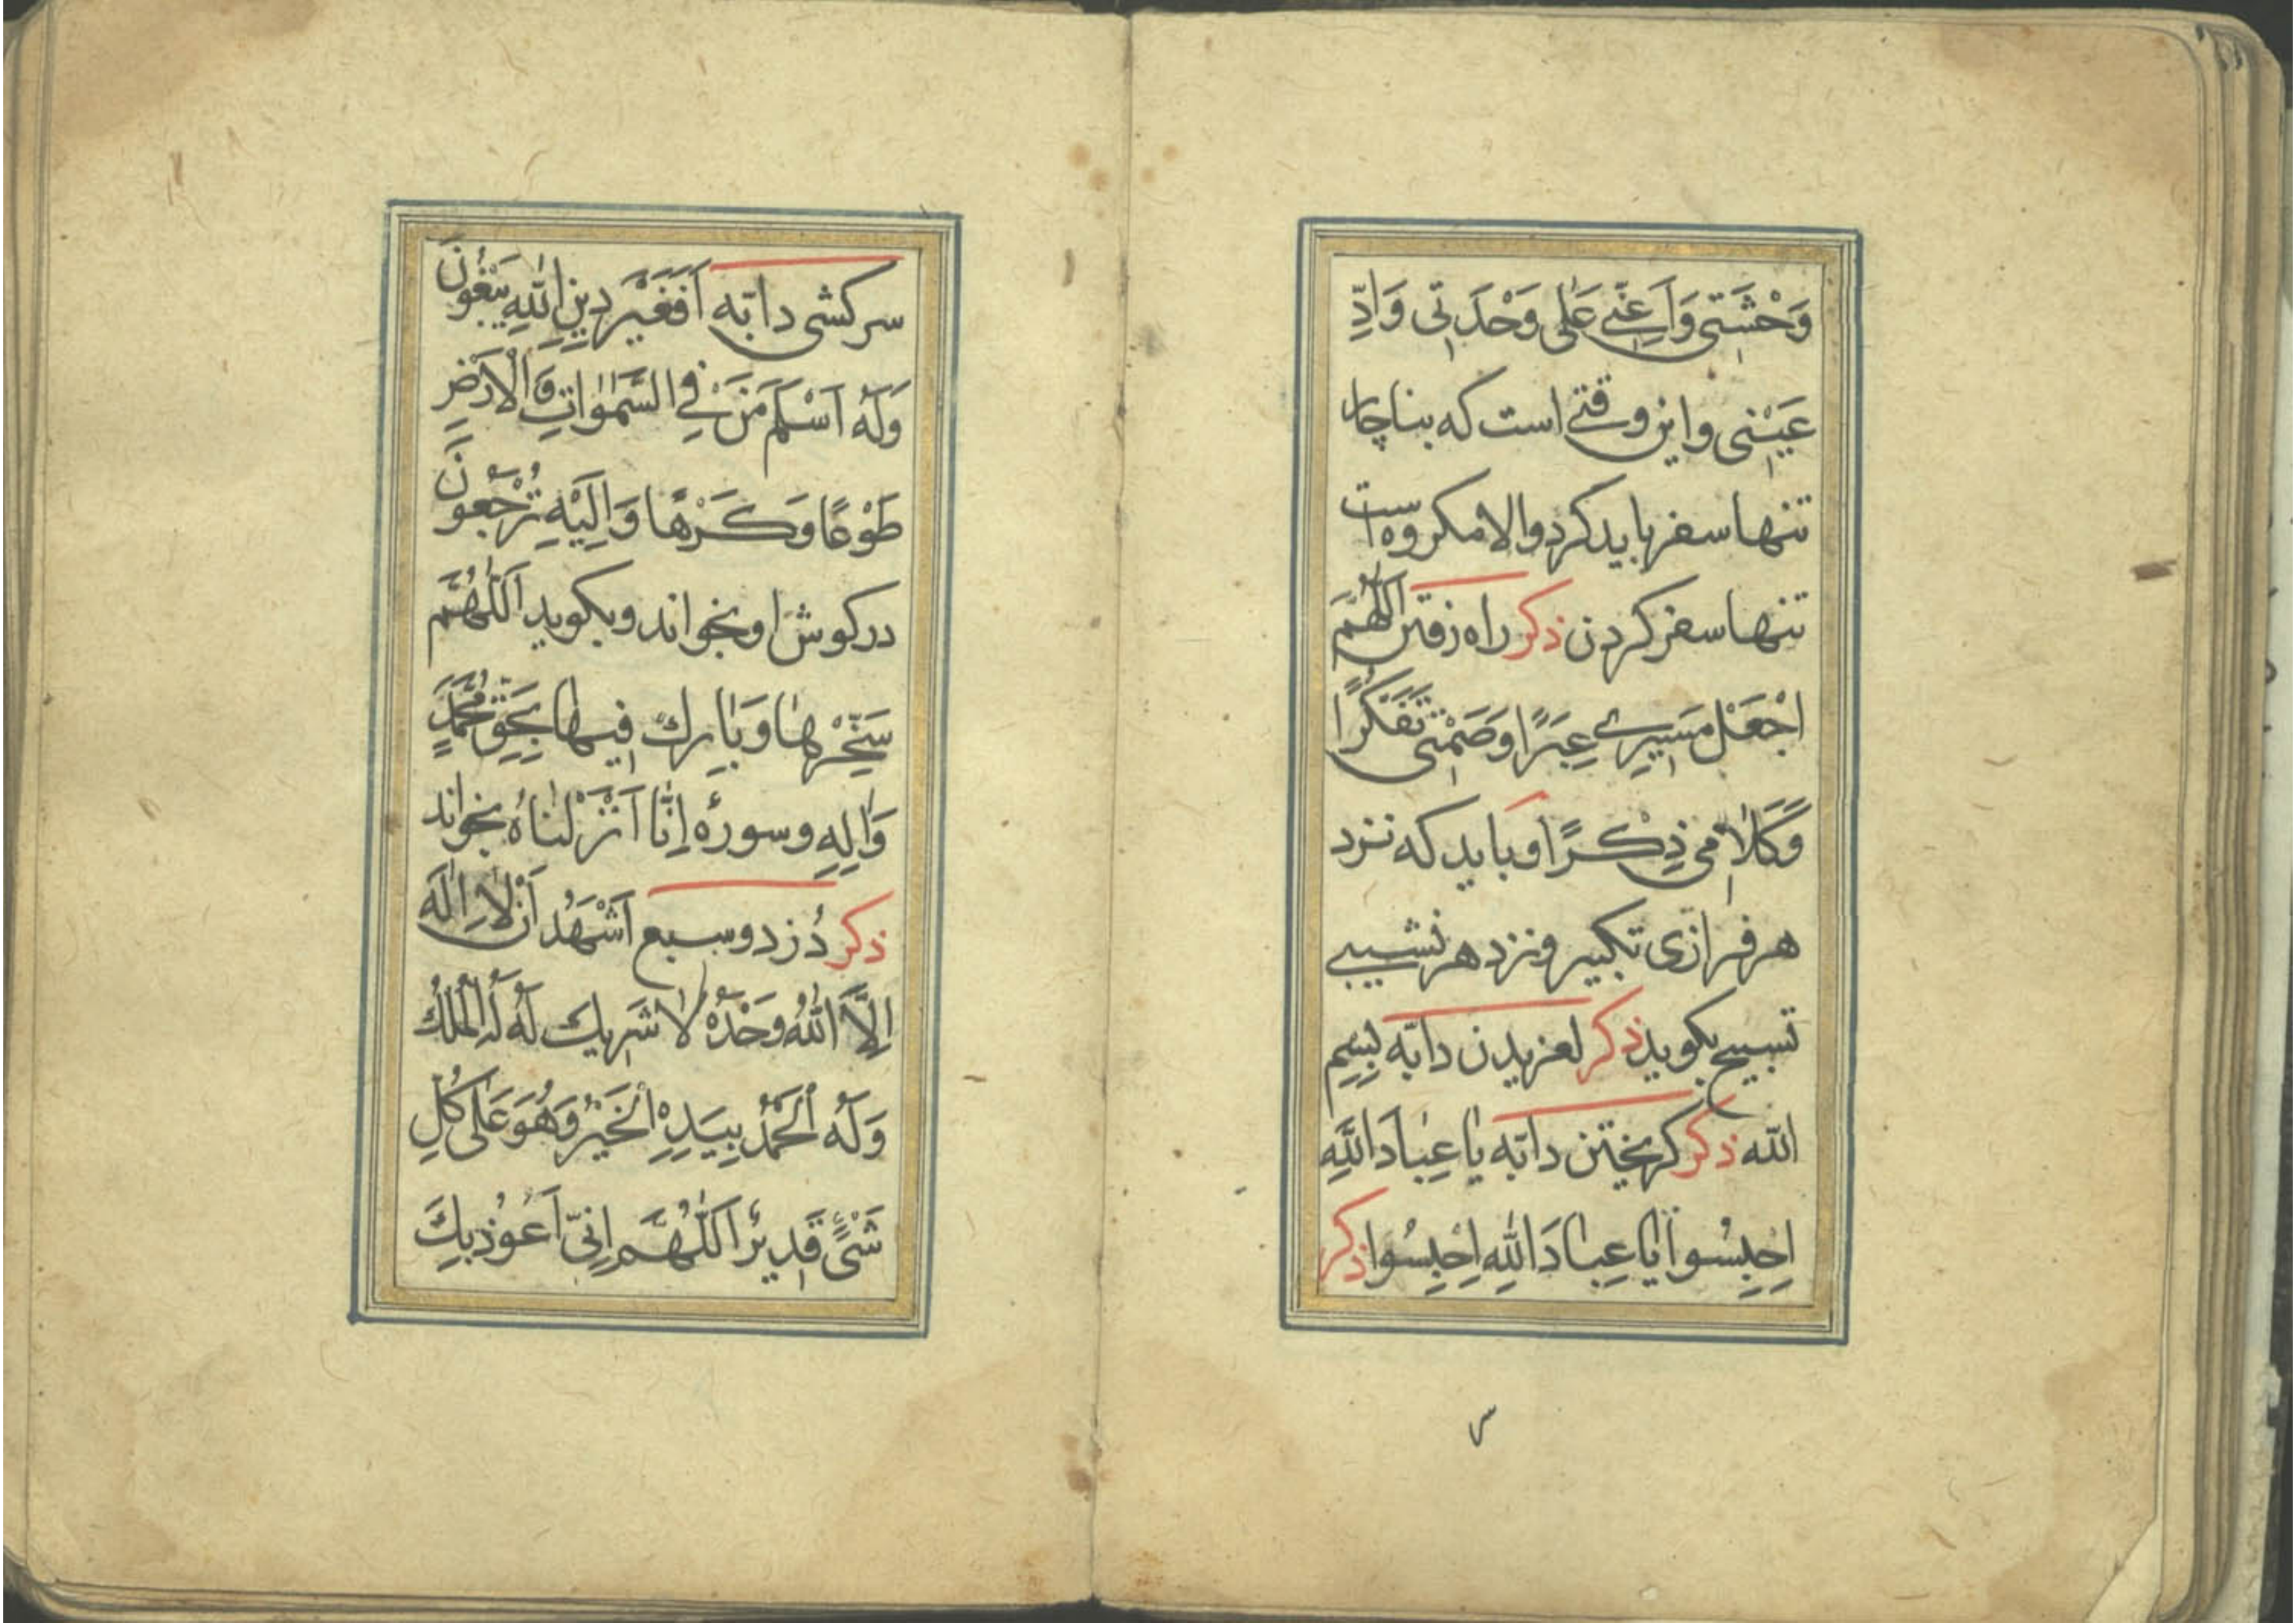 وَحْشَتِی وَاَعِنِّے عَلٰی وَحْدَتِی وَادِّ
عَیْبَنِی واین وقتے است که بناچار
تنها سفر باید کرد والا مکروه است
تنها سفر کردن ذکر راه رفتن اَللّٰهُمَّ
اجْعَلْ مَسِیرِے عِبَرًا وَصَمْتِی تَفَكُّرًا
وَكَلٰامِی ذِكْرًا وباید که نزد
هر فرازی تکبیر ونزد هر نشیبے
تسبیح بکوید ذکر لغزیدن دابّه بِسِمِ
الله ذکر کریختن دابّه یٰا عِبٰادَ اللّٰهِ
اِحْبِسُوا یٰا عِبٰادَ اللّٰهِ اِحْبِسُوا ذکر
سر
سرکشی دابّه اَفَغَیْرَ دِینِ اللّٰهِ یَبْغُونَ
وَلَهُ اَسْلَمَ مَنْ فِي السَّمٰوٰاتِ وَالْاَرْضِ
طَوْعًا وَكَرْهًا وَاِلَیْهِ تُرْجَعُونَ
در کوش او بخواند وبکوید اَللّٰهُمَّ
سَخِّرْهٰا وَبٰارِكْ فِیهٰا بِحَقِّ مُحَمَّدٍ
وَاٰلِهِ وسورهٔ اِنّٰا اَنْزَلْنٰاهُ بخواند
ذکر دُزد وسبع اَشْهَدُ اَنْ لٰا اِلٰهَ
اِلَّا اللّٰهُ وَحْدَهُ لٰا شَرِیكَ لَهُ لَهُ الْمُلْكُ
وَلَهُ الْحَمْدُ بِیَدِهِ الْخَیْرُ وَهُوَ عَلٰی كُلِّ
شَیْءٍ قَدِیرٌ اَللّٰهُمَّ اِنِّی اَعُوذُ بِكَ